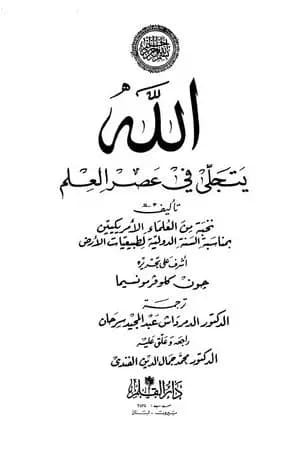 الله
يتجلى في عصر العلم
تأليف
نخبة من العلماء الأمريكيين
بمناسبة السنة الدولية لطبيعيات الأرض
أشرف على تحريره
جون كلوفر مونسيما
ترجمة
الدكتور الدمرداش عبد المجيد سرحان
راجعه وعلق عليه
الدكتور محمد جمال الدين الفندي
دار القلم
بيروت - لبنان